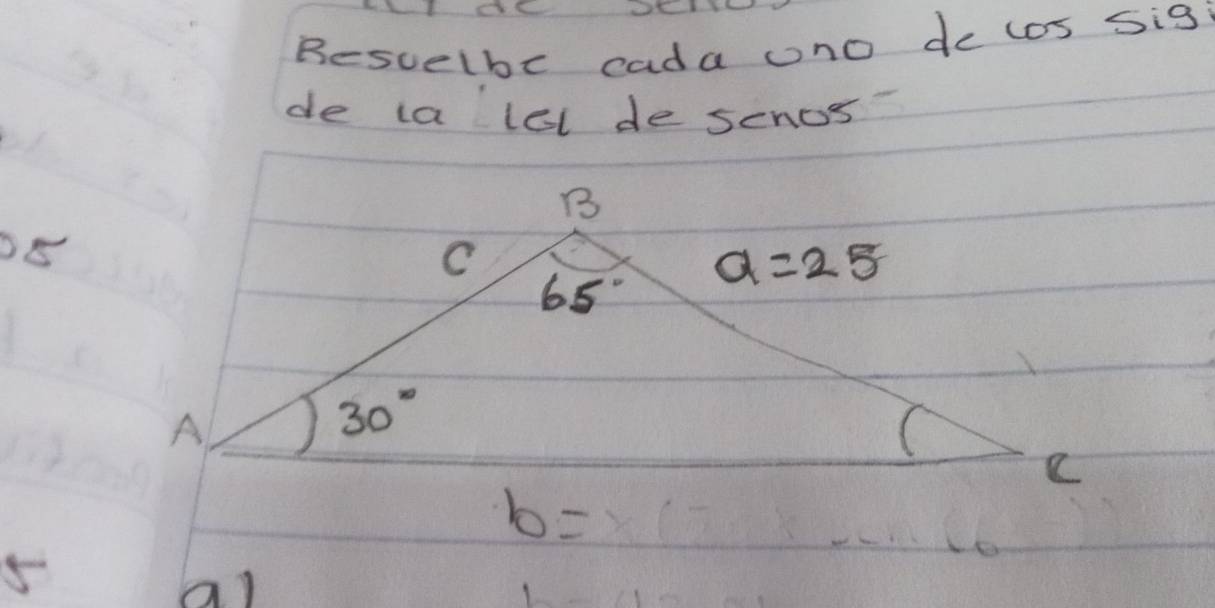 de
Resuelbe cada uno de los sig
de la lei de senos
B
C
a=25
65°
A
30°
C
b=
a)